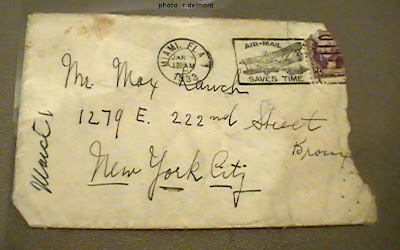 photo: r delmont
MIAMI, FLA
JAN
12 AM
1933
AIR-MAIL
SAVES TIME
Mr. Max Rauch
1279 E. 222nd Street
Bronx
New York City